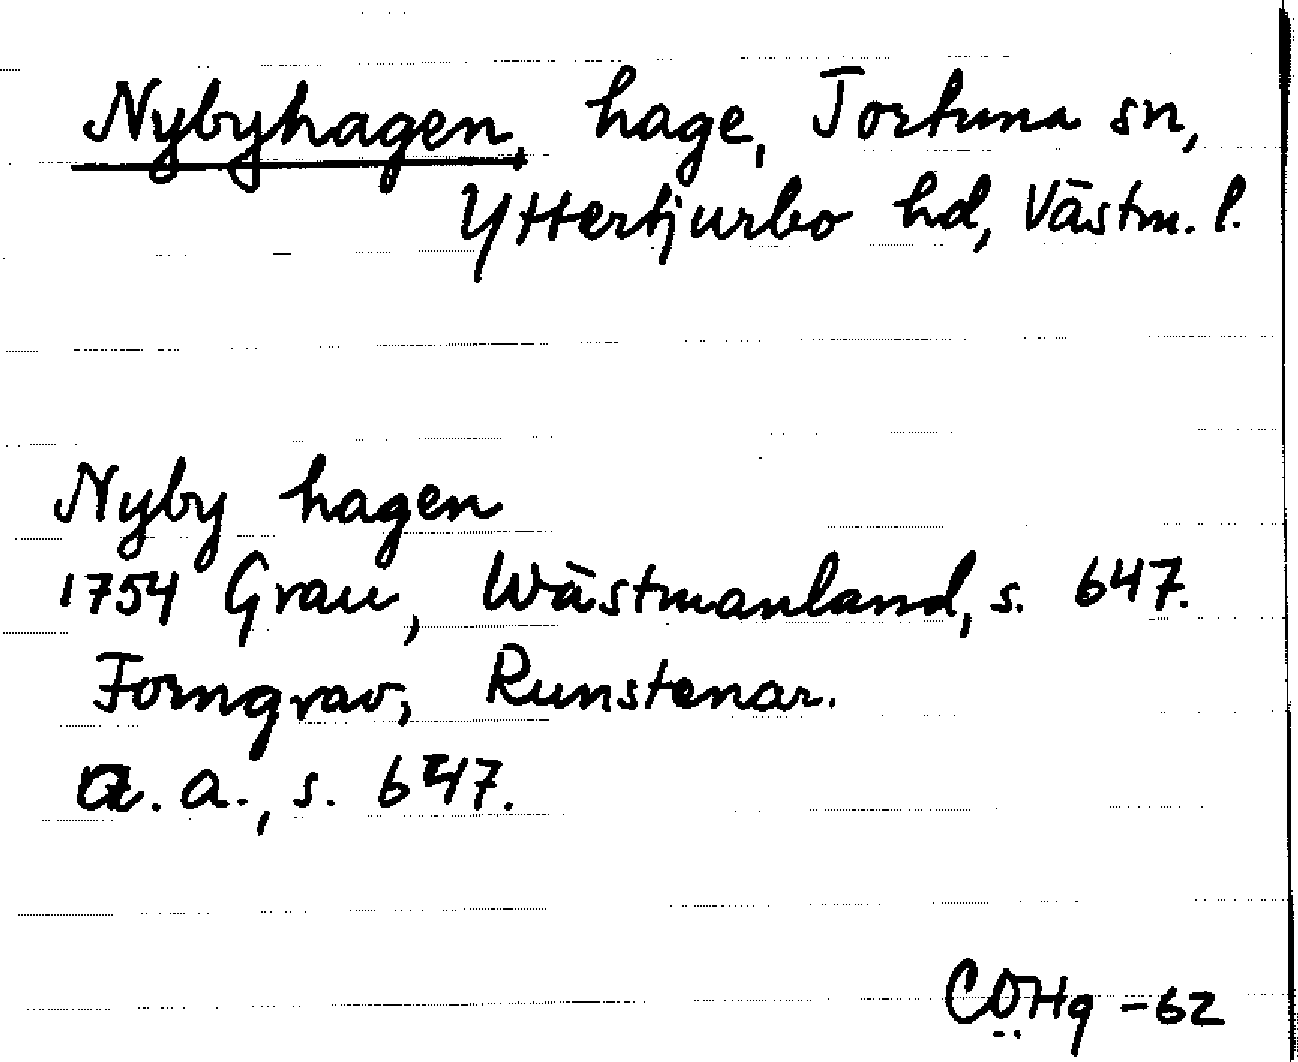 Nybyhagen, hage, Tortuna sn,
Yttertjurbo hd, Västm. l.
Nyby hagen
1754 Grau, Wästmanland, s. 647.
Forngrav, Runstenar.
a. a., s. 647.
CÖHg -62